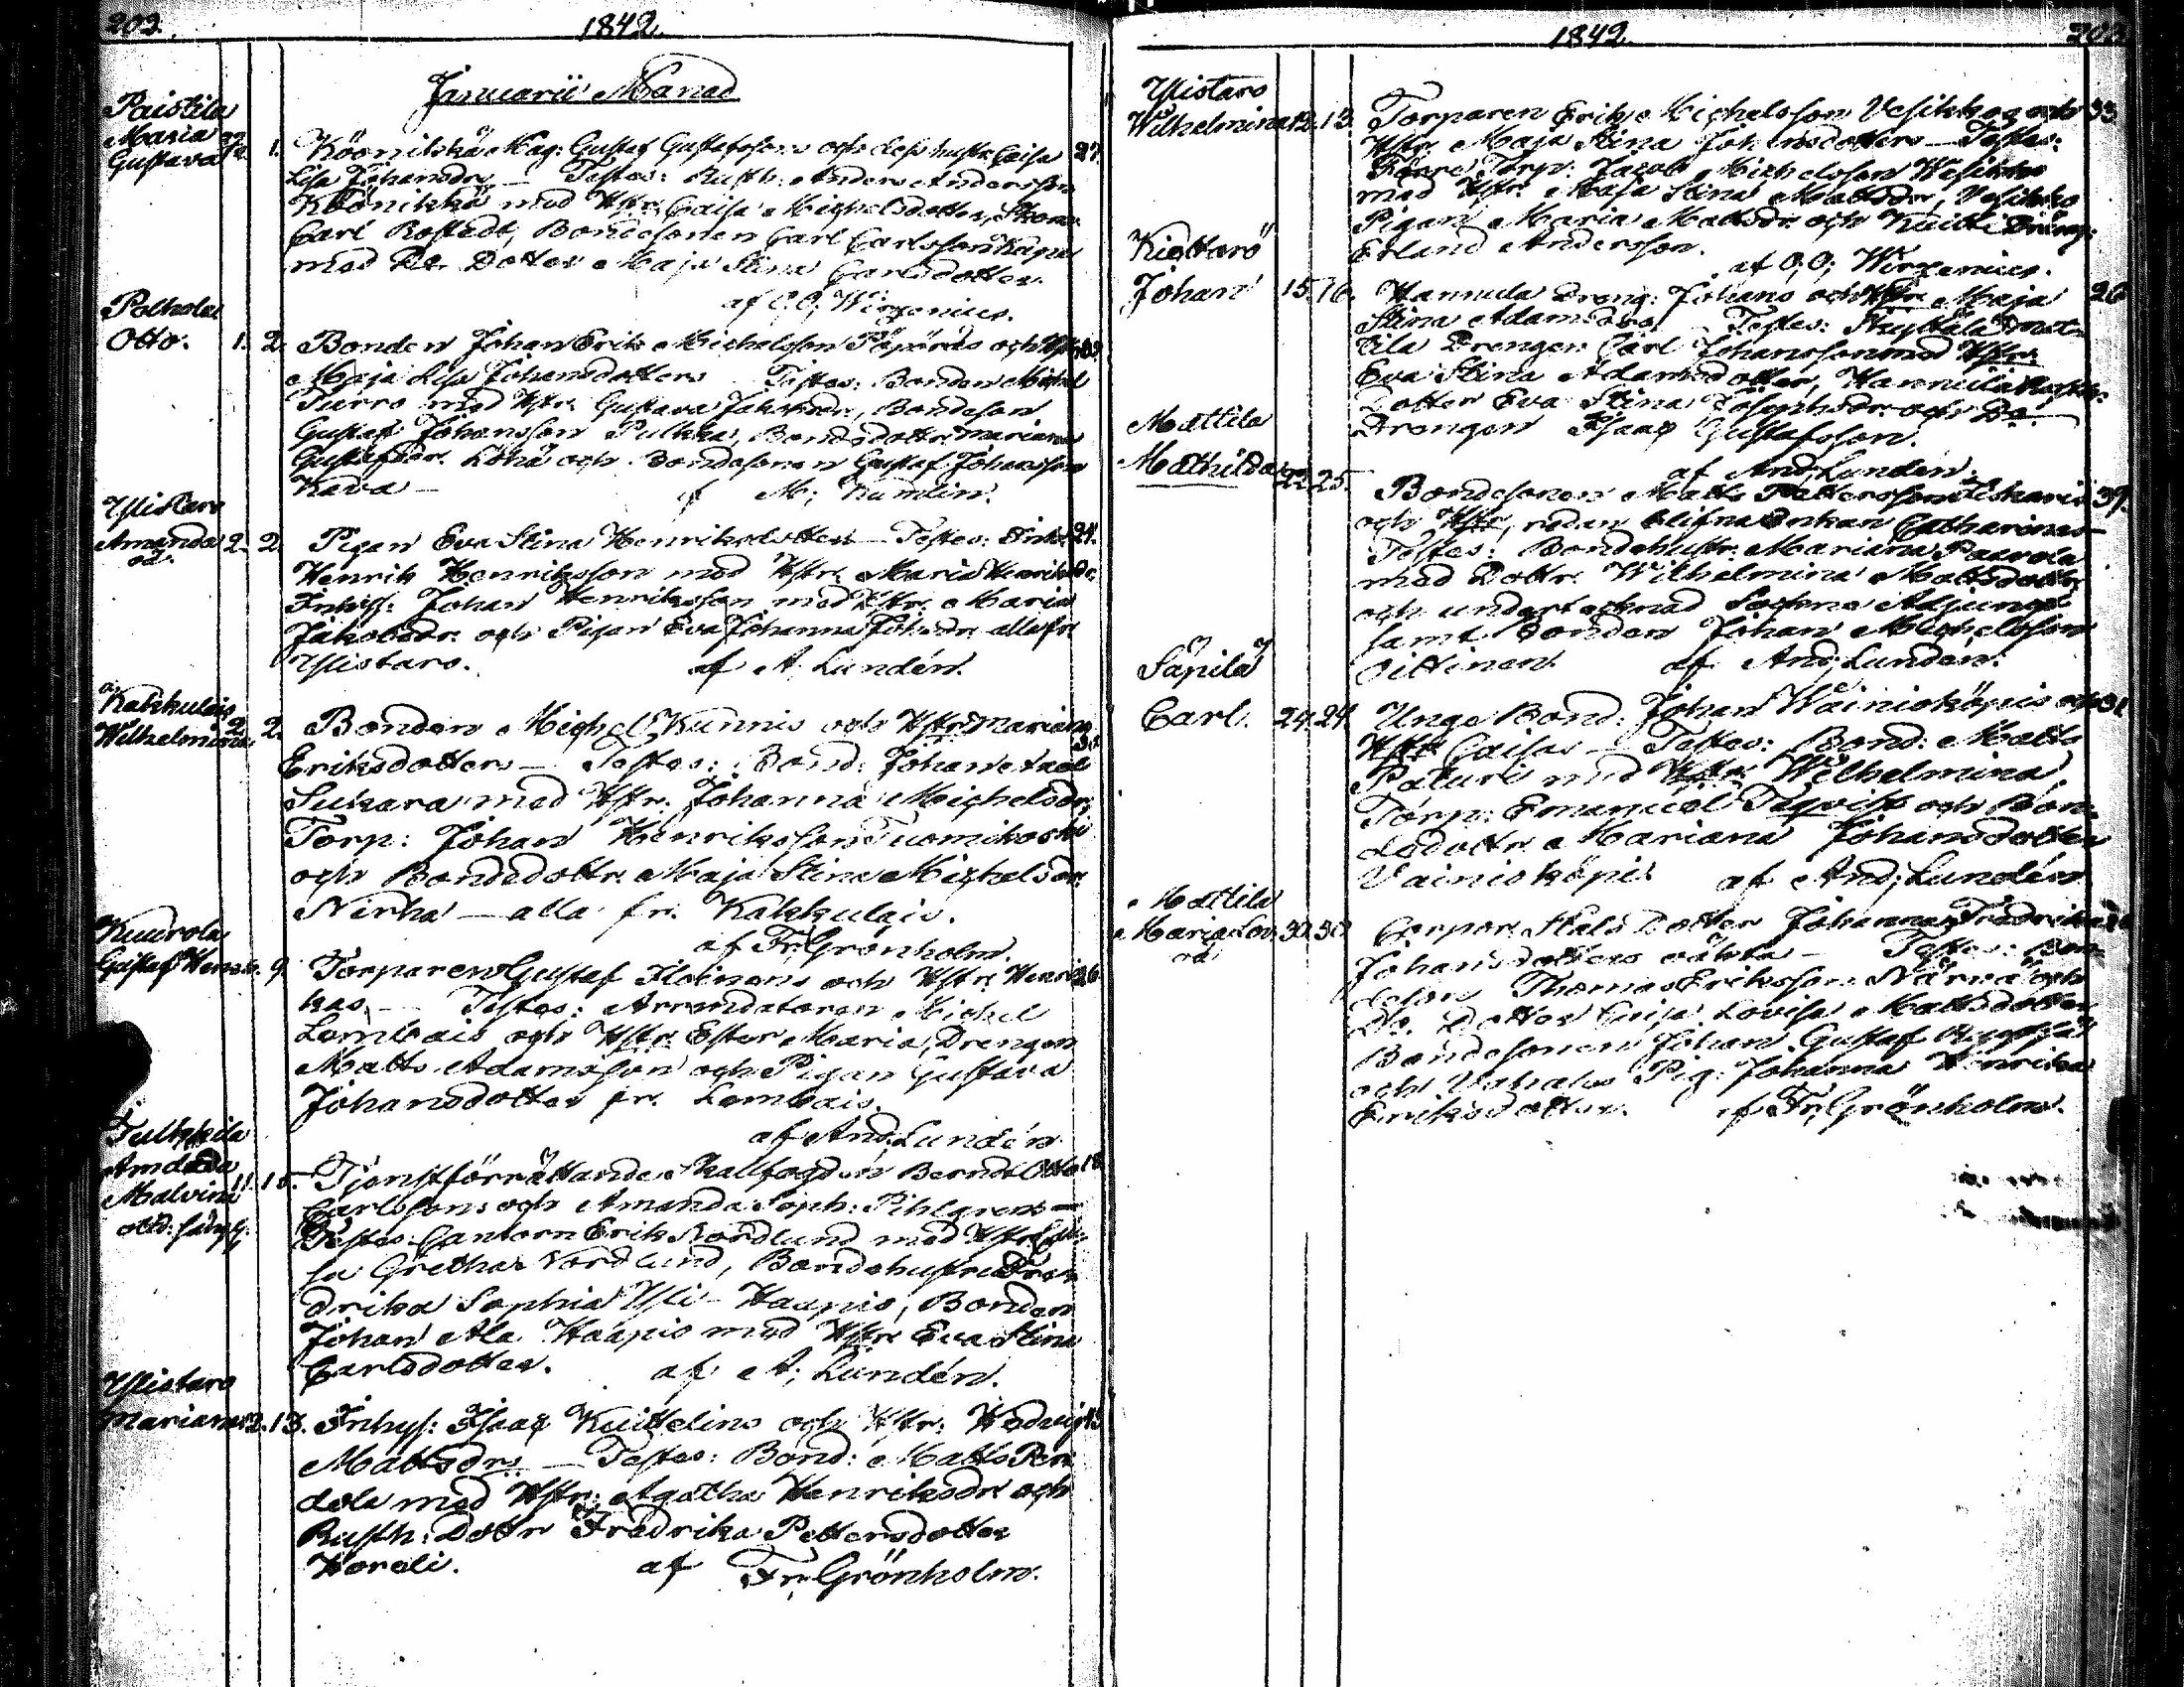 203.
1842.
Januarii Månad
Paistila
Maria
Gustava
1. Köönikkä Mag: Gustaf Gustafssons och dess hustr Caisa 27.
Lisa Johansdrs — Testes: Rusth: Anders Andersson
Köönikkä med Hstr. Caisa Michelsdotter,
Carl Rostedt, Bondesonen Carl Carlsson
med Do. Dotter Maja Stina Carlsdotter.
af O, O; Wirzenius.
Potkola
Otto. 1. 2. Bonden Johan Erik Michelsson och
Maja Lisa Johansdotters Testes: Bonden Michel
Turro med Hstr. Gustava Jakobsdr., Bondeson
Gustaf Johansson Pulkka, Bondedottr. Mariana
Gustafsdr. och Bondesonen Gustaf Johansson
Kava — af M; Kumlin.
Ylistaro
Amanda 2. 2. Pigan Eva Stina Henriksdotters — Testes: 24.
oä.
Henrik Henriksson med Hstr. Maria Henriksdr.
Inhys: Johan Henriksson med Hstr. Maria
Jakobsdr. och Pigan Eva Johanna Johsdr. alla fr.
Ylistaro. af A. Lundén.
Kakkulais
Wilhelmina 2. 2. Bonden Michel Kunnis och Hstr. Mariana
Eriksdotters — Testes: Bond: Johan Axel
Sukara med Hstr. Johanna Michelsdr,
Torp: Johan Henriksson Tuomikoski
och Bondedottr. Maja Stina Michelsdr.
Nirha — alla fr. Kakkulais.
af Fr; Grönholm.
Kuurola
Gustaf Henrik. 9. Torparen Gustaf Iloinens och Hstr. Henri 26
kas, — Testes: Arrendatoren Michel
Lembais och Hstr. Ester Maria, Drengen
Matts Adamsson och Pigan Gustava
Johansdotter fr. Lembais.
af And; Lundén
Tulkkila
Amanda
Malvina 11. 15. Tjenstförrättande Skallfogden Berndt Otto 18
Carlssons och Amanda Soph: Pihlgrens —
Testes: Cantorn Erik Nordlund med Hstr.
sa Gretha Nordlund, Bondehustru Fre
drika Sophia Yli-Haapio, Bonden
Johan Ala Haapio med Hstr. Eva Stina
Carlsdotter. af A; Lundén.
Ylistaro
Mariana 12. 13. Inhys: Isaac Kuittelins och Hstr. Hedvig
Mattsdrs — Testes: Bond: Matts Pen
dola med Hstr. Agatha Henriksdr och
Rusth: Dottr Fredrika Pettersdotter
af Fr; Grönholm.
1842.
Ylistaro
Wilhelmina 12. 13. Torparen Erik Michelsson Vesikko och 33
Hstr. Maja Stina Johansdotters — Testes:
Torp: Jacob Michelsson Wesikko
med Hstr. Maja Stina Mattsdr, Vesikko
Pigan Maria Mattsdr. och Dräng:
Erland Andersson.
af O, O; Wirzenius.
Kiettarö
Johan 15. 16. Hannula Dreng: Johans och Hstr. Maja 26
Stina Adamsdrs. Testes:
tila Drengen Carl Johansson med Hstr.
Eva Stina Adamsdotter, Hannula
Dotter Eva Stina Josephsdr. och Do.
Drengen Isaac Gustafsson.
af And; Lundén.
Mattila
Mathilda 22. 25. Bondesonen Matts Pettersson 39.
och Hstr, redan blifna Enkan Catharinas —
Testes: Bondehustr. Mariana Paavola
med Dottr. Wilhelmina Mattsdotter
och undertecknad Sockne Adjunct
samt Bonden Johan Michelsson
Oittinen. af And; Lundén.
Säpilä
Carl. 24. 24. Unge Bond: Johan Wainioköpis och 31
Hstr Caisas — Testes: Bond: Matts
med Hstr. Wilhelmina,
Torp: Emanuel Teqvist och Bon-
dedottr. Mariana Johansdotter
Vainioköpi. af And; Lundén
Mattila
Maria Lov. 30. 30 Corpor. Ståls Dotter Johanna Fredrika
oä
Johansdotters oäkta — Testes: Bon-
deson Thomas Eriksson och
Do. Dotter Caisa Lovisa Mattsdotter
Bondesonen Johan Gustaf
och Pig: Johanna Henrika
Eriksdotter. af Fr; Grönholm.